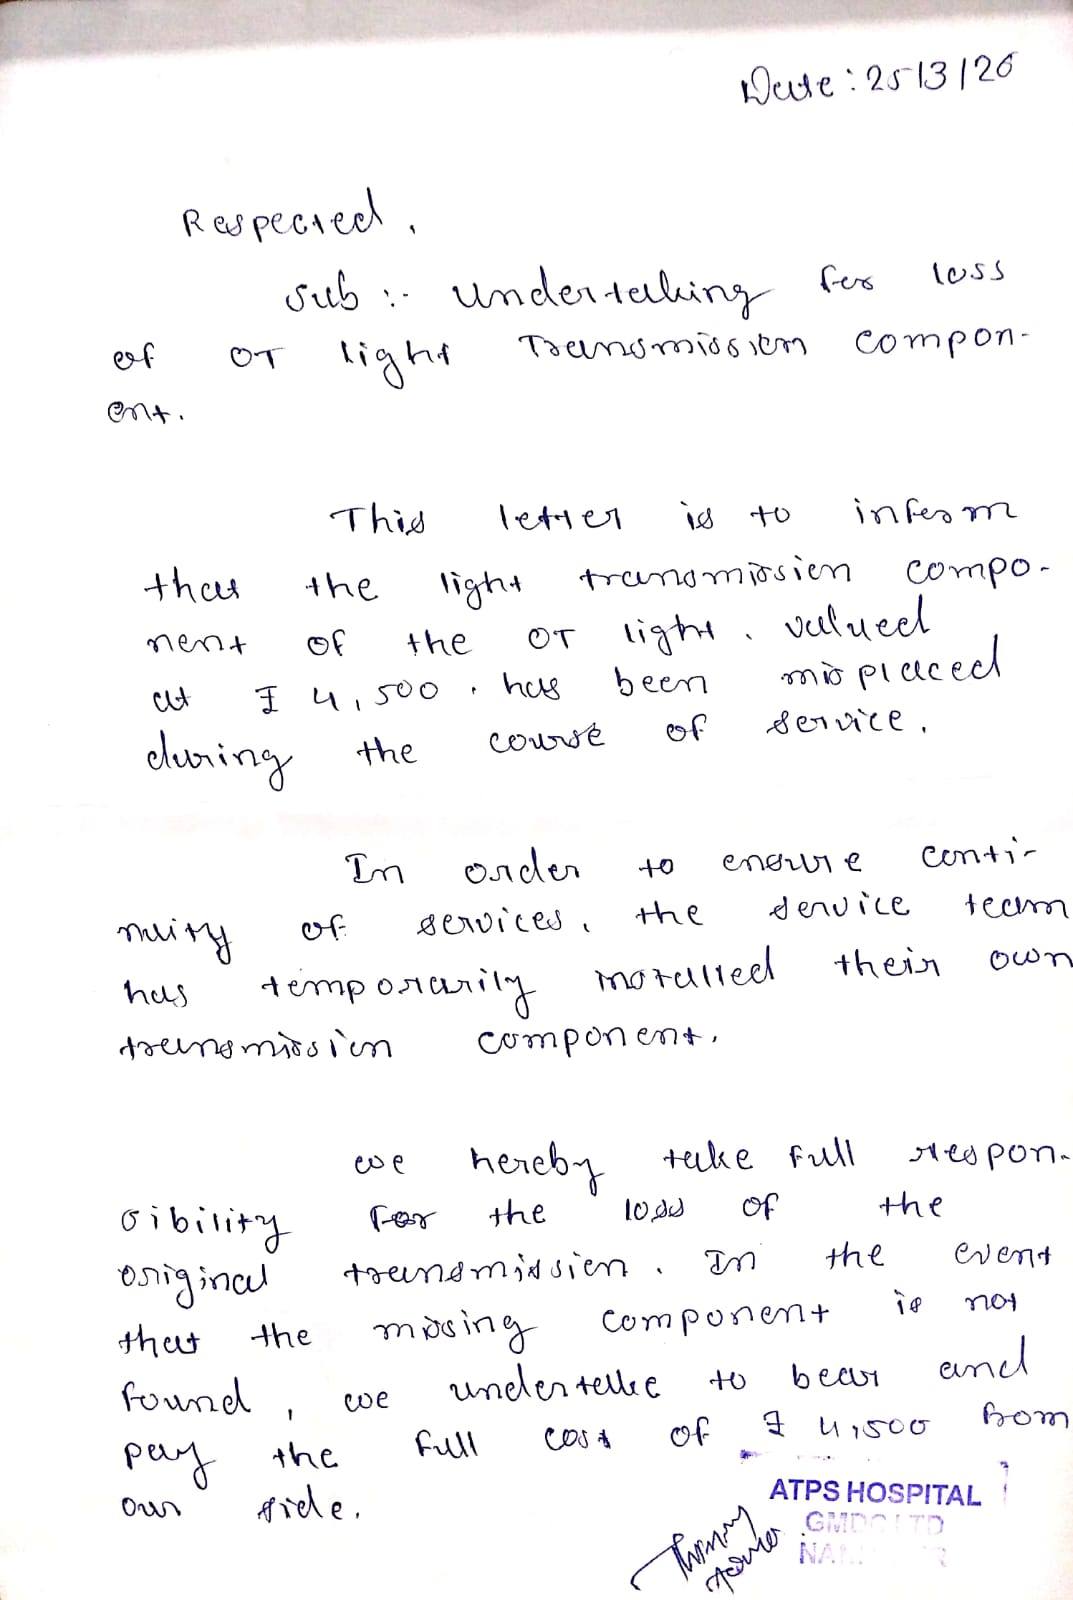 Date: 25/3/26
Respected,
Sub :- Undertaking for loss
of OT light Transmission compon-
ent.
This letter is to inform
that the light transmission compo-
nent of the OT light, valued
at ₹ 4,500, has been misplaced
during the course of service.
In order to ensure conti-
nuity of services, the service team
has temporarily installed their own
transmission component.
We hereby take full respon-
sibility for the loss of the
original transmission. In the event
that the missing component is not
found, we undertake to bear and
pay the full cost of ₹ 4,500 from
our side.
ATPS HOSPITAL
GMDC LTD